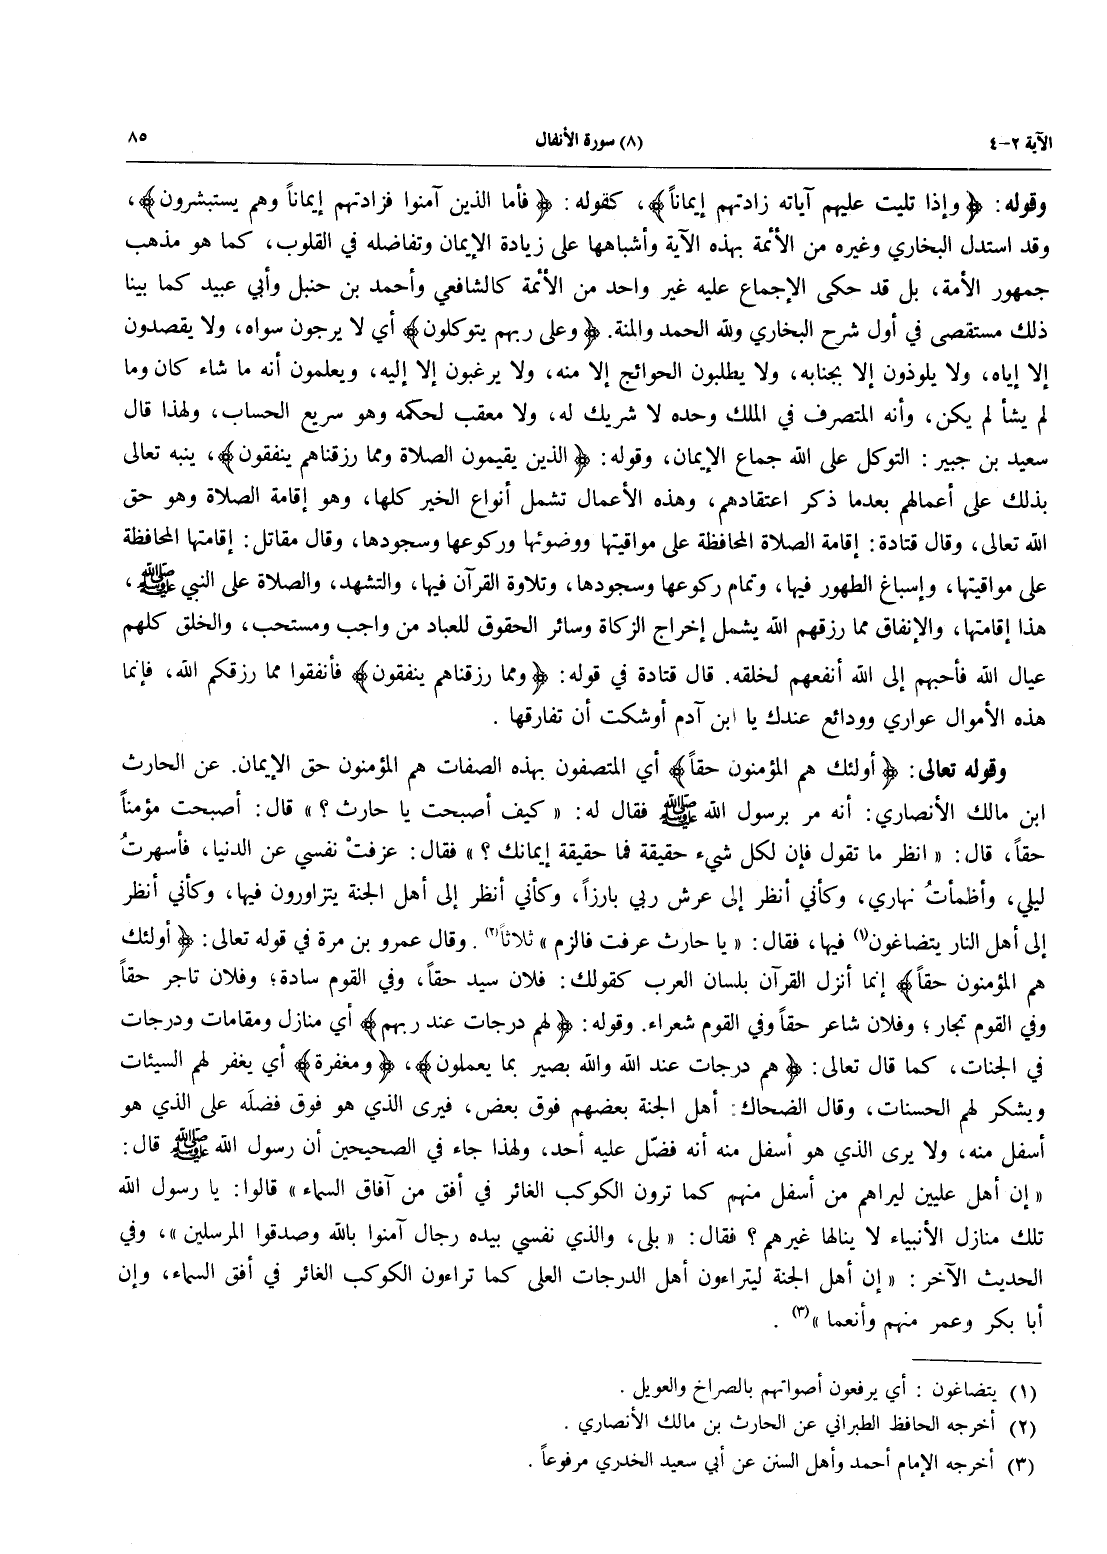 الآية ٢-٤ (٨) سورة الأنفال ٨٥
وقوله: ﴿وإذا تليت عليهم آياته زادتهم إيماناً﴾، كقوله: ﴿فأما الذين آمنوا فزادتهم إيماناً وهم يستبشرون﴾،
وقد استدل البخاري وغيره من الأئمة بهذه الآية وأشباهها على زيادة الإيمان وتفاضله في القلوب، كما هو مذهب
جمهور الأمة، بل قد حكى الإجماع عليه غير واحد من الأئمة كالشافعي وأحمد بن حنبل وأبي عبيد كما بينا
ذلك مستقصى في أول شرح البخاري ولله الحمد والمنة. ﴿وعلى ربهم يتوكلون﴾ أي لا يرجون سواه، ولا يقصدون
إلا إياه، ولا يلوذون إلا بجنابه، ولا يطلبون الحوائج إلا منه، ولا يرغبون إلا إليه، ويعلمون أنه ما شاء كان وما
لم يشأ لم يكن، وأنه المتصرف في الملك وحده لا شريك له، ولا معقب لحكمه وهو سريع الحساب، ولهذا قال
سعيد بن جبير : التوكل على الله جماع الإيمان، وقوله: ﴿الذين يقيمون الصلاة ومما رزقناهم ينفقون﴾، ينبه تعالى
بذلك على أعمالهم بعدما ذكر اعتقادهم، وهذه الأعمال تشمل أنواع الخير كلها، وهو إقامة الصلاة وهو حق
الله تعالى، وقال قتادة: إقامة الصلاة المحافظة على مواقيتها ووضوئها وركوعها وسجودها، وقال مقاتل: إقامتها المحافظة
على مواقيتها، وإسباغ الطهور فيها، وتمام ركوعها وسجودها، وتلاوة القرآن فيها، والتشهد، والصلاة على النبي ﷺ،
هذا إقامتها، والإنفاق مما رزقهم الله يشمل إخراج الزكاة وسائر الحقوق للعباد من واجب ومستحب، والخلق كلهم
عيال الله فأحبهم إلى الله أنفعهم لخلقه. قال قتادة في قوله: ﴿ومما رزقناهم ينفقون﴾ فأنفقوا مما رزقكم الله، فإنما
هذه الأموال عواري وودائع عندك يا ابن آدم أوشكت أن تفارقها .
وقوله تعالى: ﴿أولئك هم المؤمنون حقاً﴾ أي المتصفون بهذه الصفات هم المؤمنون حق الإيمان. عن الحارث
ابن مالك الأنصاري: أنه مر برسول الله ﷺ فقال له: « كيف أصبحت يا حارث ؟ » قال: أصبحت مؤمناً
حقاً، قال: « انظر ما تقول فإن لكل شيء حقيقة فما حقيقة إيمانك ؟ » فقال: عزفتْ نفسي عن الدنيا، فأسهرتُ
ليلي، وأظمأتُ نهاري، وكأني أنظر إلى عرش ربي بارزاً، وكأني أنظر إلى أهل الجنة يتزاورون فيها، وكأني أنظر
إلى أهل النار يتضاغون(١) فيها، فقال: « يا حارث عرفت فالزم » ثلاثاً(٢) . وقال عمرو بن مرة في قوله تعالى: ﴿أولئك
هم المؤمنون حقاً﴾ إنما أنزل القرآن بلسان العرب كقولك: فلان سيد حقاً، وفي القوم سادة؛ وفلان تاجر حقاً
وفي القوم تجار ؛ وفلان شاعر حقاً وفي القوم شعراء. وقوله: ﴿لهم درجات عند ربهم﴾ أي منازل ومقامات ودرجات
في الجنات، كما قال تعالى: ﴿هم درجات عند الله والله بصير بما يعملون﴾، ﴿ومغفرة﴾ أي يغفر لهم السيئات
ويشكر لهم الحسنات، وقال الضحاك: أهل الجنة بعضهم فوق بعض، فيرى الذي هو فوق فضلَه على الذي هو
أسفل منه، ولا يرى الذي هو أسفل منه أنه فضّل عليه أحد، ولهذا جاء في الصحيحين أن رسول الله ﷺ قال:
« إن أهل عليين ليراهم من أسفل منهم كما ترون الكوكب الغائر في أفق من آفاق السماء » قالوا: يا رسول الله
تلك منازل الأنبياء لا ينالها غيرهم ؟ فقال: « بلى، والذي نفسي بيده رجال آمنوا بالله وصدقوا المرسلين »، وفي
الحديث الآخر : « إن أهل الجنة ليتراءون أهل الدرجات العلى كما تراءون الكوكب الغائر في أفق السماء، وإن
أبا بكر وعمر منهم وأنعما »(٣) .
(١) يتضاغون : أي يرفعون أصواتهم بالصراخ والعويل .
(٢) أخرجه الحافظ الطبراني عن الحارث بن مالك الأنصاري .
(٣) أخرجه الإمام أحمد وأهل السنن عن أبي سعيد الخدري مرفوعاً .